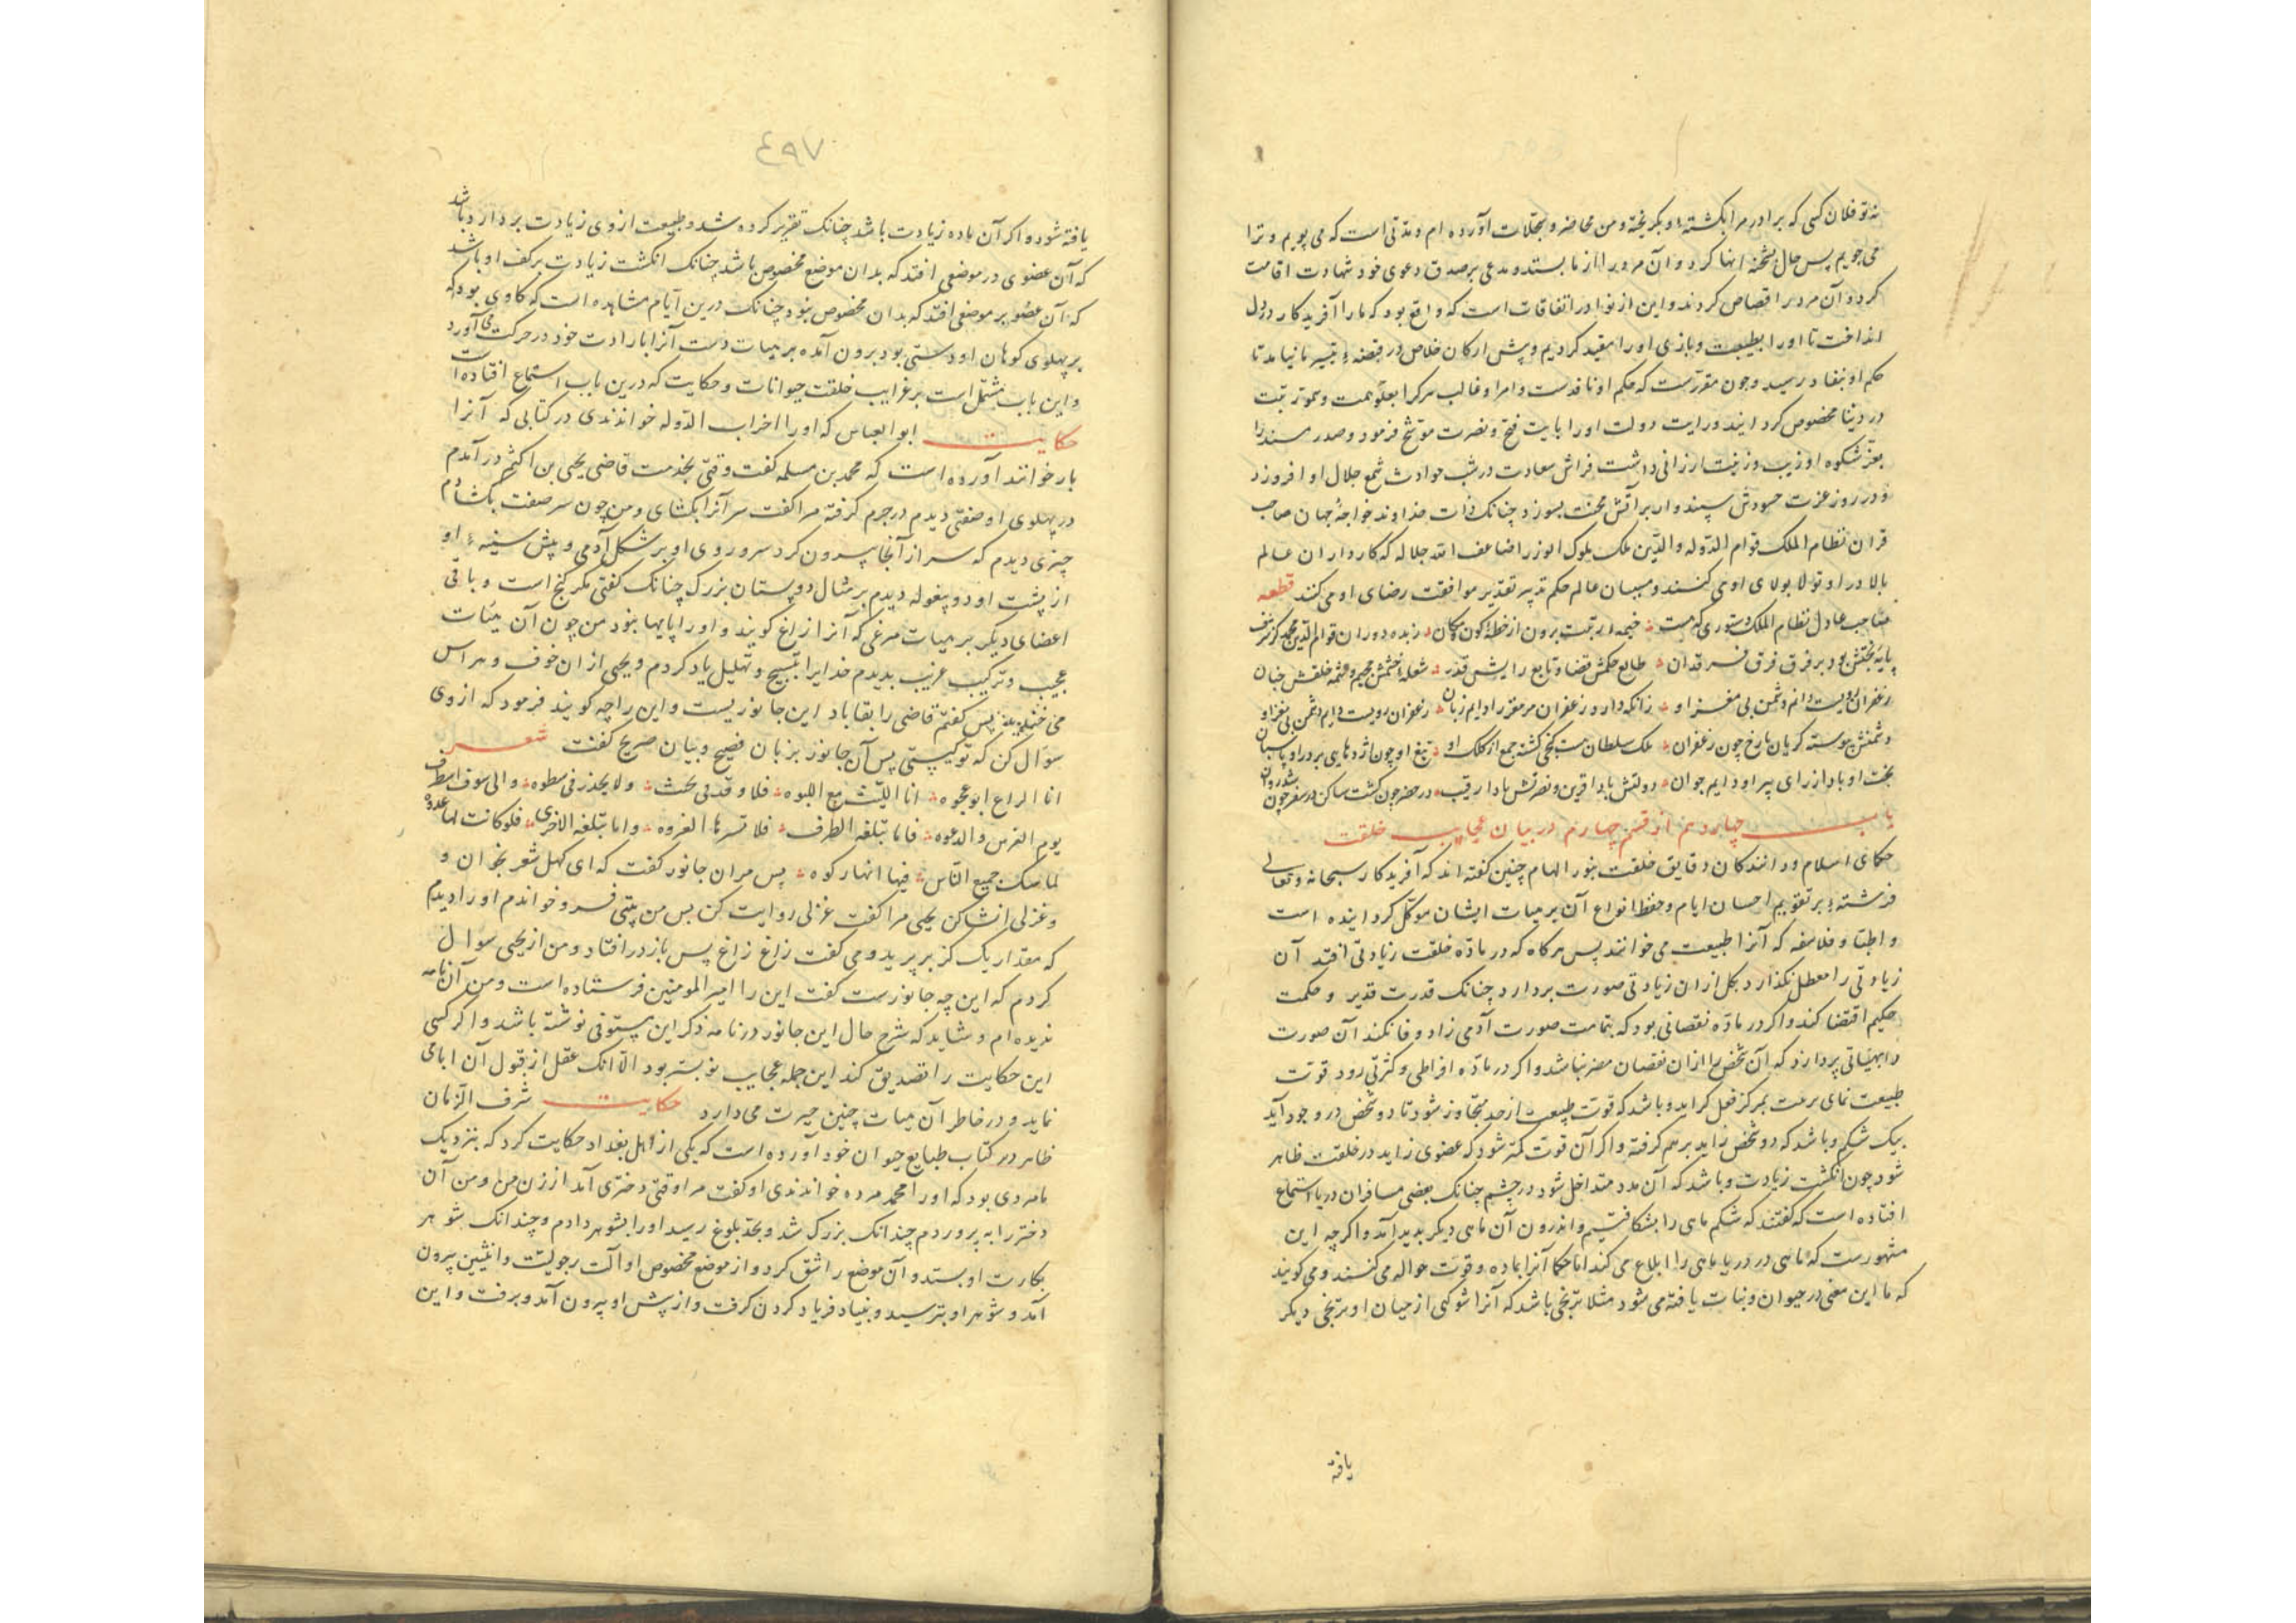 نه تو فلان کسی که برادر مرا بکشتهٔ و بکریخته و من محاضر و سجلات آورده ام و مدتی است که می پویم و ترا
می جویم پس حال بشحنه انها کرد و آن مرد را از ما بستد و مدعی بر صدق دعوی خود شهادت اقامت
کرد و آن مرد را قصاص کردند و این از نوادر اتفاقات است که واقع بود که ما را آفریدکار در دل
انداخت تا او را بطیبت و بازی او را مقید کردیم و پش ارکان خلاص در قبضهٔ تیسیر ما نیامد تا
حکم او بنفاد رسید و چون مقررست که حکم او نافدست و امر او غالب هر کرا بعلو همت و سمو رتبت
در دنیا مخصوص کرد ایند و رایت دولت او را بایت فتح و نصرت موشح فرمود و صدر مسند را
بعز شکوه او زیب و زینت ارزانی داشت فراش سعادت در شب حوادث شمع جلال او افروزد
و در روز عزت حسودش سپندوار بر آتش محنت بسوزد چنانک ذات خداوند خواجهٔ جهان صاحب
قران نظام الملک قوام الدوله والدین ملک ملوک الوزرا ضاعف الله جلاله که کارداران عالم
بالا در او تولا بولای اوی کنند و مسبان عالم حکم تدبیر تقدیر موافقت رضای او می کنند قطعه
صاحب عادل نظام الملک دستوری که هست خیمهٔ رتبت برون از خطهٔ کون و مکان زبده دوران قوام الدین محمد کز شرف
پایه تختش بود بر فرق فرق فرقدان طابع حکمش قضا و تابع رایش قدر شعله خشمش جحیم و چشمه خلقش جنان
زعفران رویست دایم دشمن بی مغز او زانکه دارد زعفران مر مقر را دایم زبان زعفران رویست دایم دشمن بی مغز او
دشمنش پیوسته کریان با رخ چون زعفران ملک سلطان هست کنجی کشته جمع از کلک او تیغ او چون اژدهایی بر در او پاسبان
بخت او باد از رای پیر او دایم جوان دولتش بادا قرین و نصرتش بادا رقیب در حضر چون کشت ساکن در سفر چون شد روان
باب چهاردهم از قسم چهارم در بیان عجایب خلقت
حکمای اسلام و دانندکان دقایق خلقت بنور الهام چنین کفته اند که آفریدکار سبحانه و تعالی
فرشتهٔ بر تقویم احسان ایام و حفظ انواع آن بر هیات ایشان موکل کردانیده است
و اطبا و فلاسفه که آنرا طبیعت می خوانند پس هرکاه که در مادّه خلقت زیادتی افتد آن
زیادتی را معطل نکذارد بکل از ان زیادتی صورت بردارد چنانک قدرت قدیر و حکمت
حکیم اقتضا کند و اکر در مادّه نقصانی بود که بتمامت صورت آدمی زاد وفا نکند آن صورت
را بهیئاتی پردازد که آن شخص را از ان نقصان مضر نباشد و اکر در مادّه افراطی و کثرتی رود قوت
طبیعت نمای برعت بمرکز فعل کراید و باشد که قوت طبیعت از حد متجاوز شود تا دو شخص در وجود آید
بیک شکم و باشد که دو شخص زاید بر هم کرفته و اکر آن قوت کمتر شود که عضوی زاید در خلقت ظاهر
شود چون انکشت زیادت و باشد که آن مدد متداخل شود در چشم چنانک بعضی مسافران دریا استماع
افتاده است که کفتند که شکم ماهی را بشکافتیم و اندرون آن ماهی دیکر بدید آمد و اکرچه این
مشهورست که ماهی در دریا ماهی را ابلاع می کند اما حکما آنرا بماده و قوت حواله می کنند و می کویند
که ما این معنی در حیوان و نبات یافته می شود مثلا ترنجی باشد که آنرا شو کنی از میان او ترنجی دیکر
یافته
٤٩٧
یافته شود و اکر آن ماده زیادت باشد چنانک تقریر کرده شد و طبیعت از وی زیادت بردارد باشد
که آن عضوی در موضعی افتد که بدان موضع مخصوص باشد چنانک انکشت زیادت بر کف او باشد
که آن عضو بر موضعی افتد که بدان مخصوص نبود چنانک درین ایام مشاهده است که کاوی بود که
بر پهلوی کوهان او دستی بود برون آمده بر هیات دست آنرا بارادت خود در حرکت می آورد
و این باب مشتمل است بر غرایب خلقت حیوانات و حکایت که درین باب استماع افتاده است
حکایت ابو العباس که او را اخراب الدوله خواندندی در کتابی که آنرا
بار خوانند آورده است که محمد بن مسلمه کفت وقتی بخدمت قاضی یحیی بن اکثم در آمدم
در پهلوی او صفتی دیدم در جرم کرفته مرا کفت سر آنرا بکشای و من چون سر صفت بکشادم
چیزی دیدم که سر از آنجا بیرون کرد سر و روی او بر شکل آدمی و پیش سینهٔ او
از پشت او دو پیغوله دیدم بر مثال دو پستان بزرک چنانک کفتی مکر کنج است و باقی
اعضای دیکر بر هیات مرغی که آنرا زاغ کویند و او را پایها بنود من چون آن هیئات
عجیب و ترکیب غریب بدیدم خدایرا تسبیح و تهلیل یاد کردم و یحیی از ان خوف و هراس
می خندید پس کفتم قاضی را بقا باد این جانوریست و این را چه کویند فرمود که از وی
سوال کن که تو کیستی پس آن جانور بزبان فصیح و بیان صریح کفت شعر
انا الزاغ ابو عجوه انا اللیث مع اللبوه فلا و قدنی بحث ولا یحذر فی سطوه والی سوف اسطرف
یوم العرس والدعوه فاما سلغه الطرف فلا تسرها الفروه واما سلغه الاخری فلو کانت لها عروه
لما شک جمیع الناس فیها انها رکوه پس مر ان جانور کفت که ای کهل شعر بخوان و
و غزلی انشا کن یحیی مرا کفت غزلی روایت کن پس من بیتی فرو خواندم او را دیدم
که مقدار یک کز بر پرید و می کفت زاغ زاغ پس باز در افتاد و من از یحیی سوال
کردم که این چه جانورست کفت این را امیر المومنین فرستاده است و من آن نامه
ندیده ام و شاید که شرح حال این جانور در نامه ذکر این مستوفی نوشته باشد و اکر کسی
این حکایت را تصدیق کند این جمله عجایب نوبستر بود الا انک عقل از قبول آن ابا می
نماید و در خاطر آن هیات چنین حیرت می دارد حکایت شرف الزمان
ظاهر در کتاب طبایع حیوان خود آورده است که یکی از اهل بغداد حکایت کرد که بنزدیک
ما مردی بود که او را محمد مرده خواندندی او کفت مرا وقتی دختری آمد از زن من و من آن
دختر را به پروردم چندانک بزرک شد و بحد بلوغ رسید او را بشوهر دادم و چندانک شوهر
بکارت او بستد و آن موضع را شق کرد و از موضع مخصوص او آلت رجولیت و انثیین بیرون
آمد و شوهر او بترسید و بنیاد فریاد کردن کرفت و از پیش او بیرون آمد و برفت و این